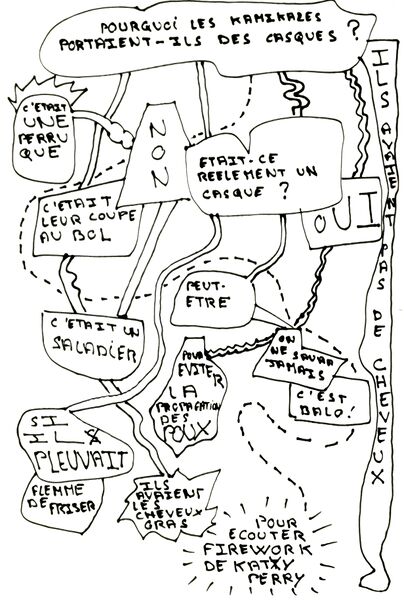 POURQUOI LES KAMIKAZES
PORTAIENT-ILS DES CASQUES ?
C'ETAIT
UNE
PERRU
QUE
NON
ETAIT-CE
REELEMENT UN
CASQUE ?
OUI
ILS AVAIENT PAS DE CHEVEUX
C'ETAIT
LEUR COUPE
AU BOL
PEUT-
ETRE
C'ETAIT UN
SALADIER
ON
NE SAURA
JAMAIS
C'EST
BALO!
POUR
EVITER
LA
PROPAGATION
DES
POUX
SI
ILS
PLEUVAIT
FLEMME
DE FRISER
ILS
AVAIENT
LES
CHEVEUX
GRAS
POUR
ECOUTER
FIREWORK
DE KATXY
PERRY